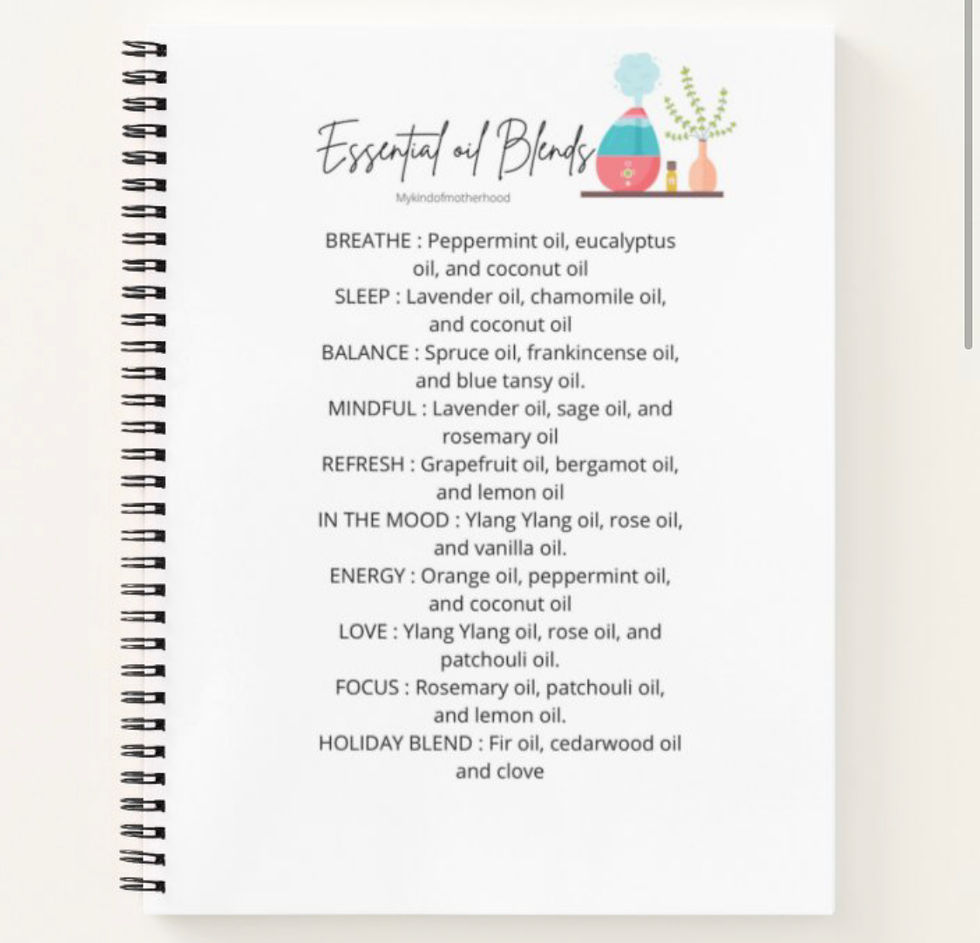 Essential oil Blends
Mykindofmotherhood
BREATHE : Peppermint oil, eucalyptus
oil, and coconut oil
SLEEP : Lavender oil, chamomile oil,
and coconut oil
BALANCE : Spruce oil, frankincense oil,
and blue tansy oil.
MINDFUL : Lavender oil, sage oil, and
rosemary oil
REFRESH : Grapefruit oil, bergamot oil,
and lemon oil
IN THE MOOD : Ylang Ylang oil, rose oil,
and vanilla oil.
ENERGY : Orange oil, peppermint oil,
and coconut oil
LOVE : Ylang Ylang oil, rose oil, and
patchouli oil.
FOCUS : Rosemary oil, patchouli oil,
and lemon oil.
HOLIDAY BLEND : Fir oil, cedarwood oil
and clove